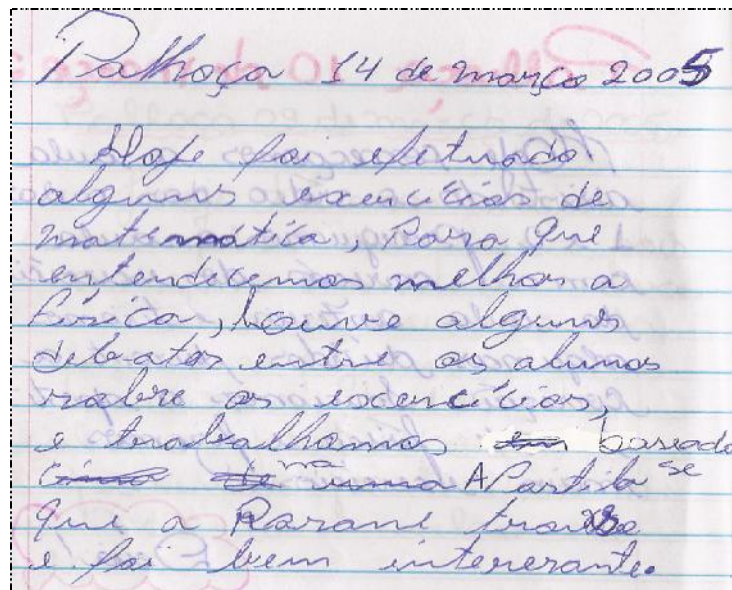 Palhoça 14 de março 2005
Hoje foi efetuado
alguns exercícios de
matemática, Para que
entendecemos melhor a
física, houve alguns
debates entre os alunos
sobre os exercícios,
e trabalhamos baseado
na APostila se
que a Rarane trouxe
e foi bem interesante.